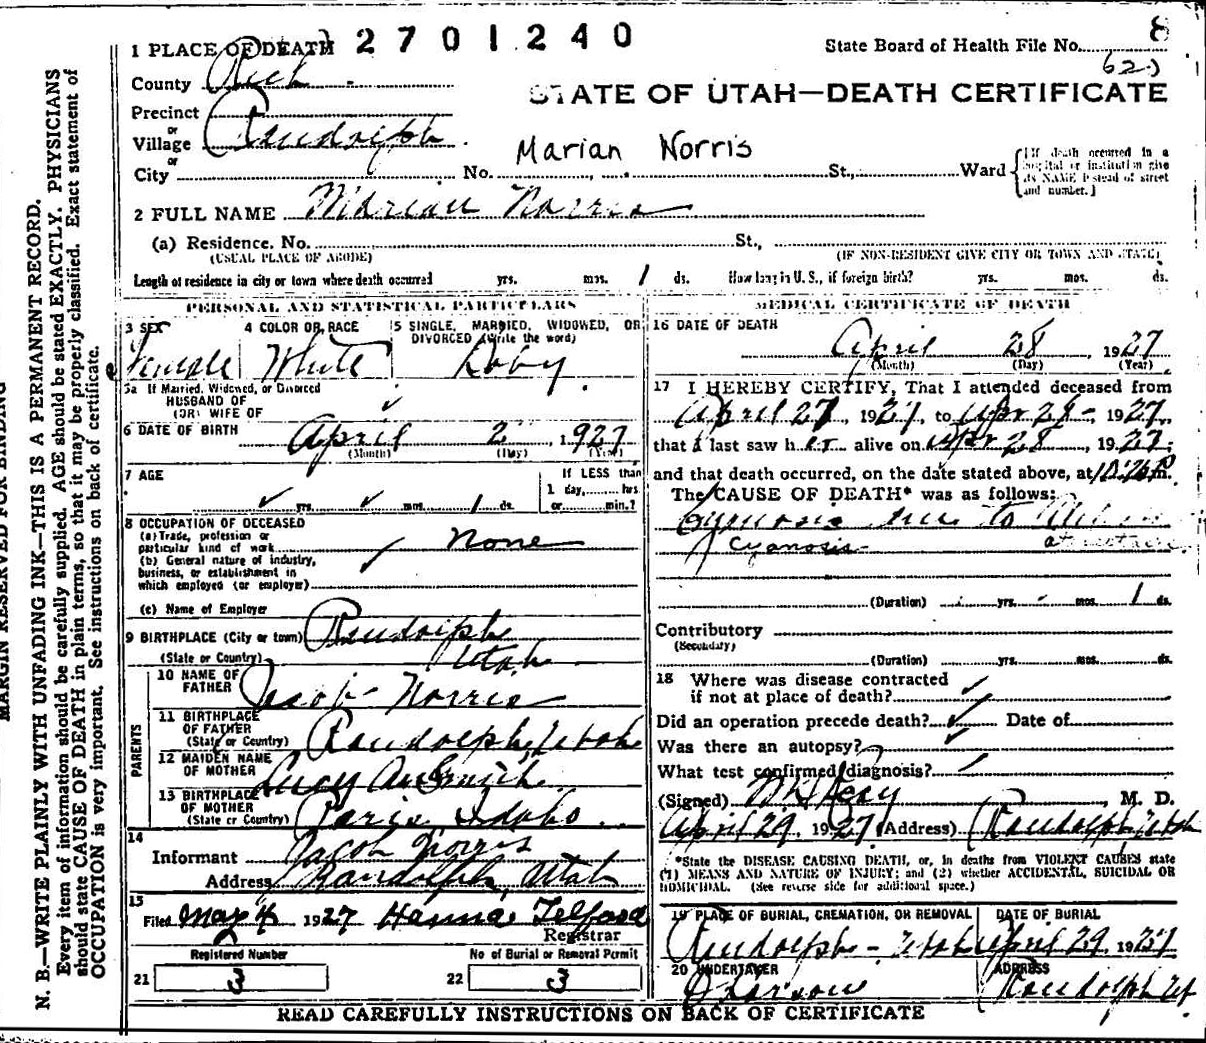 MARGIN RESERVED FOR BINDING
N. B.—WRITE PLAINLY WITH UNFADING INK—THIS IS A PERMANENT RECORD.
Every item of information should be carefully supplied. AGE should be stated EXACTLY. PHYSICIANS
should state CAUSE OF DEATH in plain terms, so that it may be properly classified. Exact statement of
OCCUPATION is very important. See instructions on back of certificate.
1 PLACE OF DEATH 2701240 State Board of Health File No. 8
(62)
County Rich
STATE OF UTAH—DEATH CERTIFICATE
Precinct
or
Village Randolph
Marian Norris
or
City No. St., Ward
[If death occurred in a hospital or institution give its NAME instead of street and number.]
2 FULL NAME Marian Norris
(a) Residence. No. St.,
(USUAL PLACE OF ABODE) (IF NON-RESIDENT GIVE CITY OR TOWN AND STATE)
Length of residence in city or town where death occurred yrs. mos. 1 ds. How long in U. S., if foreign birth? yrs. mos. ds.
PERSONAL AND STATISTICAL PARTICULARS
3 SEX 4 COLOR OR RACE 5 SINGLE, MARRIED, WIDOWED, OR
DIVORCED (Write the word)
Female White Baby
5a If Married, Widowed, or Divorced
HUSBAND OF
(OR) WIFE OF
6 DATE OF BIRTH April 2 1927
(Month) (Day) (Year)
7 AGE If LESS than
1 day, hrs.
yrs. mos. 1 ds. or min.?
8 OCCUPATION OF DECEASED
(a) Trade, profession or
particular kind of work None
(b) General nature of industry,
business, or establishment in
which employed (or employer)
(c) Name of Employer
9 BIRTHPLACE (City or town) Randolph
(State or Country) Utah
PARENTS
10 NAME OF
FATHER Jacob Norris
11 BIRTHPLACE
OF FATHER
(State or Country) Randolph, Utah
12 MAIDEN NAME
OF MOTHER Lucy Smith
13 BIRTHPLACE
OF MOTHER
(State or Country) Paris Idaho
14
Informant Jacob Norris
Address Randolph, Utah
15
Filed May 4 1927 Hanna Telford
Registrar
Registered Number No of Burial or Removal Permit
21 3 22 3
MEDICAL CERTIFICATE OF DEATH
16 DATE OF DEATH
April 28, 1927
(Month) (Day) (Year)
17 I HEREBY CERTIFY, That I attended deceased from
April 27, 1927, to Apr 28 - 1927
that I last saw her alive on Apr 28, 1927;
and that death occurred, on the date stated above, at m.
The CAUSE OF DEATH* was as follows:
due to
Cyanosis
(Duration) yrs. mos. 1 ds.
Contributory
(Secondary)
(Duration) yrs. mos. ds.
18 Where was disease contracted
if not at place of death?
Did an operation precede death? Date of
Was there an autopsy?
What test confirmed diagnosis?
(Signed) , M. D.
April 29, 1927 (Address) Randolph Utah
*State the DISEASE CAUSING DEATH, or, in deaths from VIOLENT CAUSES state
(1) MEANS AND NATURE OF INJURY; and (2) whether ACCIDENTAL, SUICIDAL OR
HOMICIDAL. (See reverse side for additional space.)
19 PLACE OF BURIAL, CREMATION, OR REMOVAL DATE OF BURIAL
Randolph - Utah April 29, 1927
20 UNDERTAKER ADDRESS
Larson Randolph Ut
READ CAREFULLY INSTRUCTIONS ON BACK OF CERTIFICATE